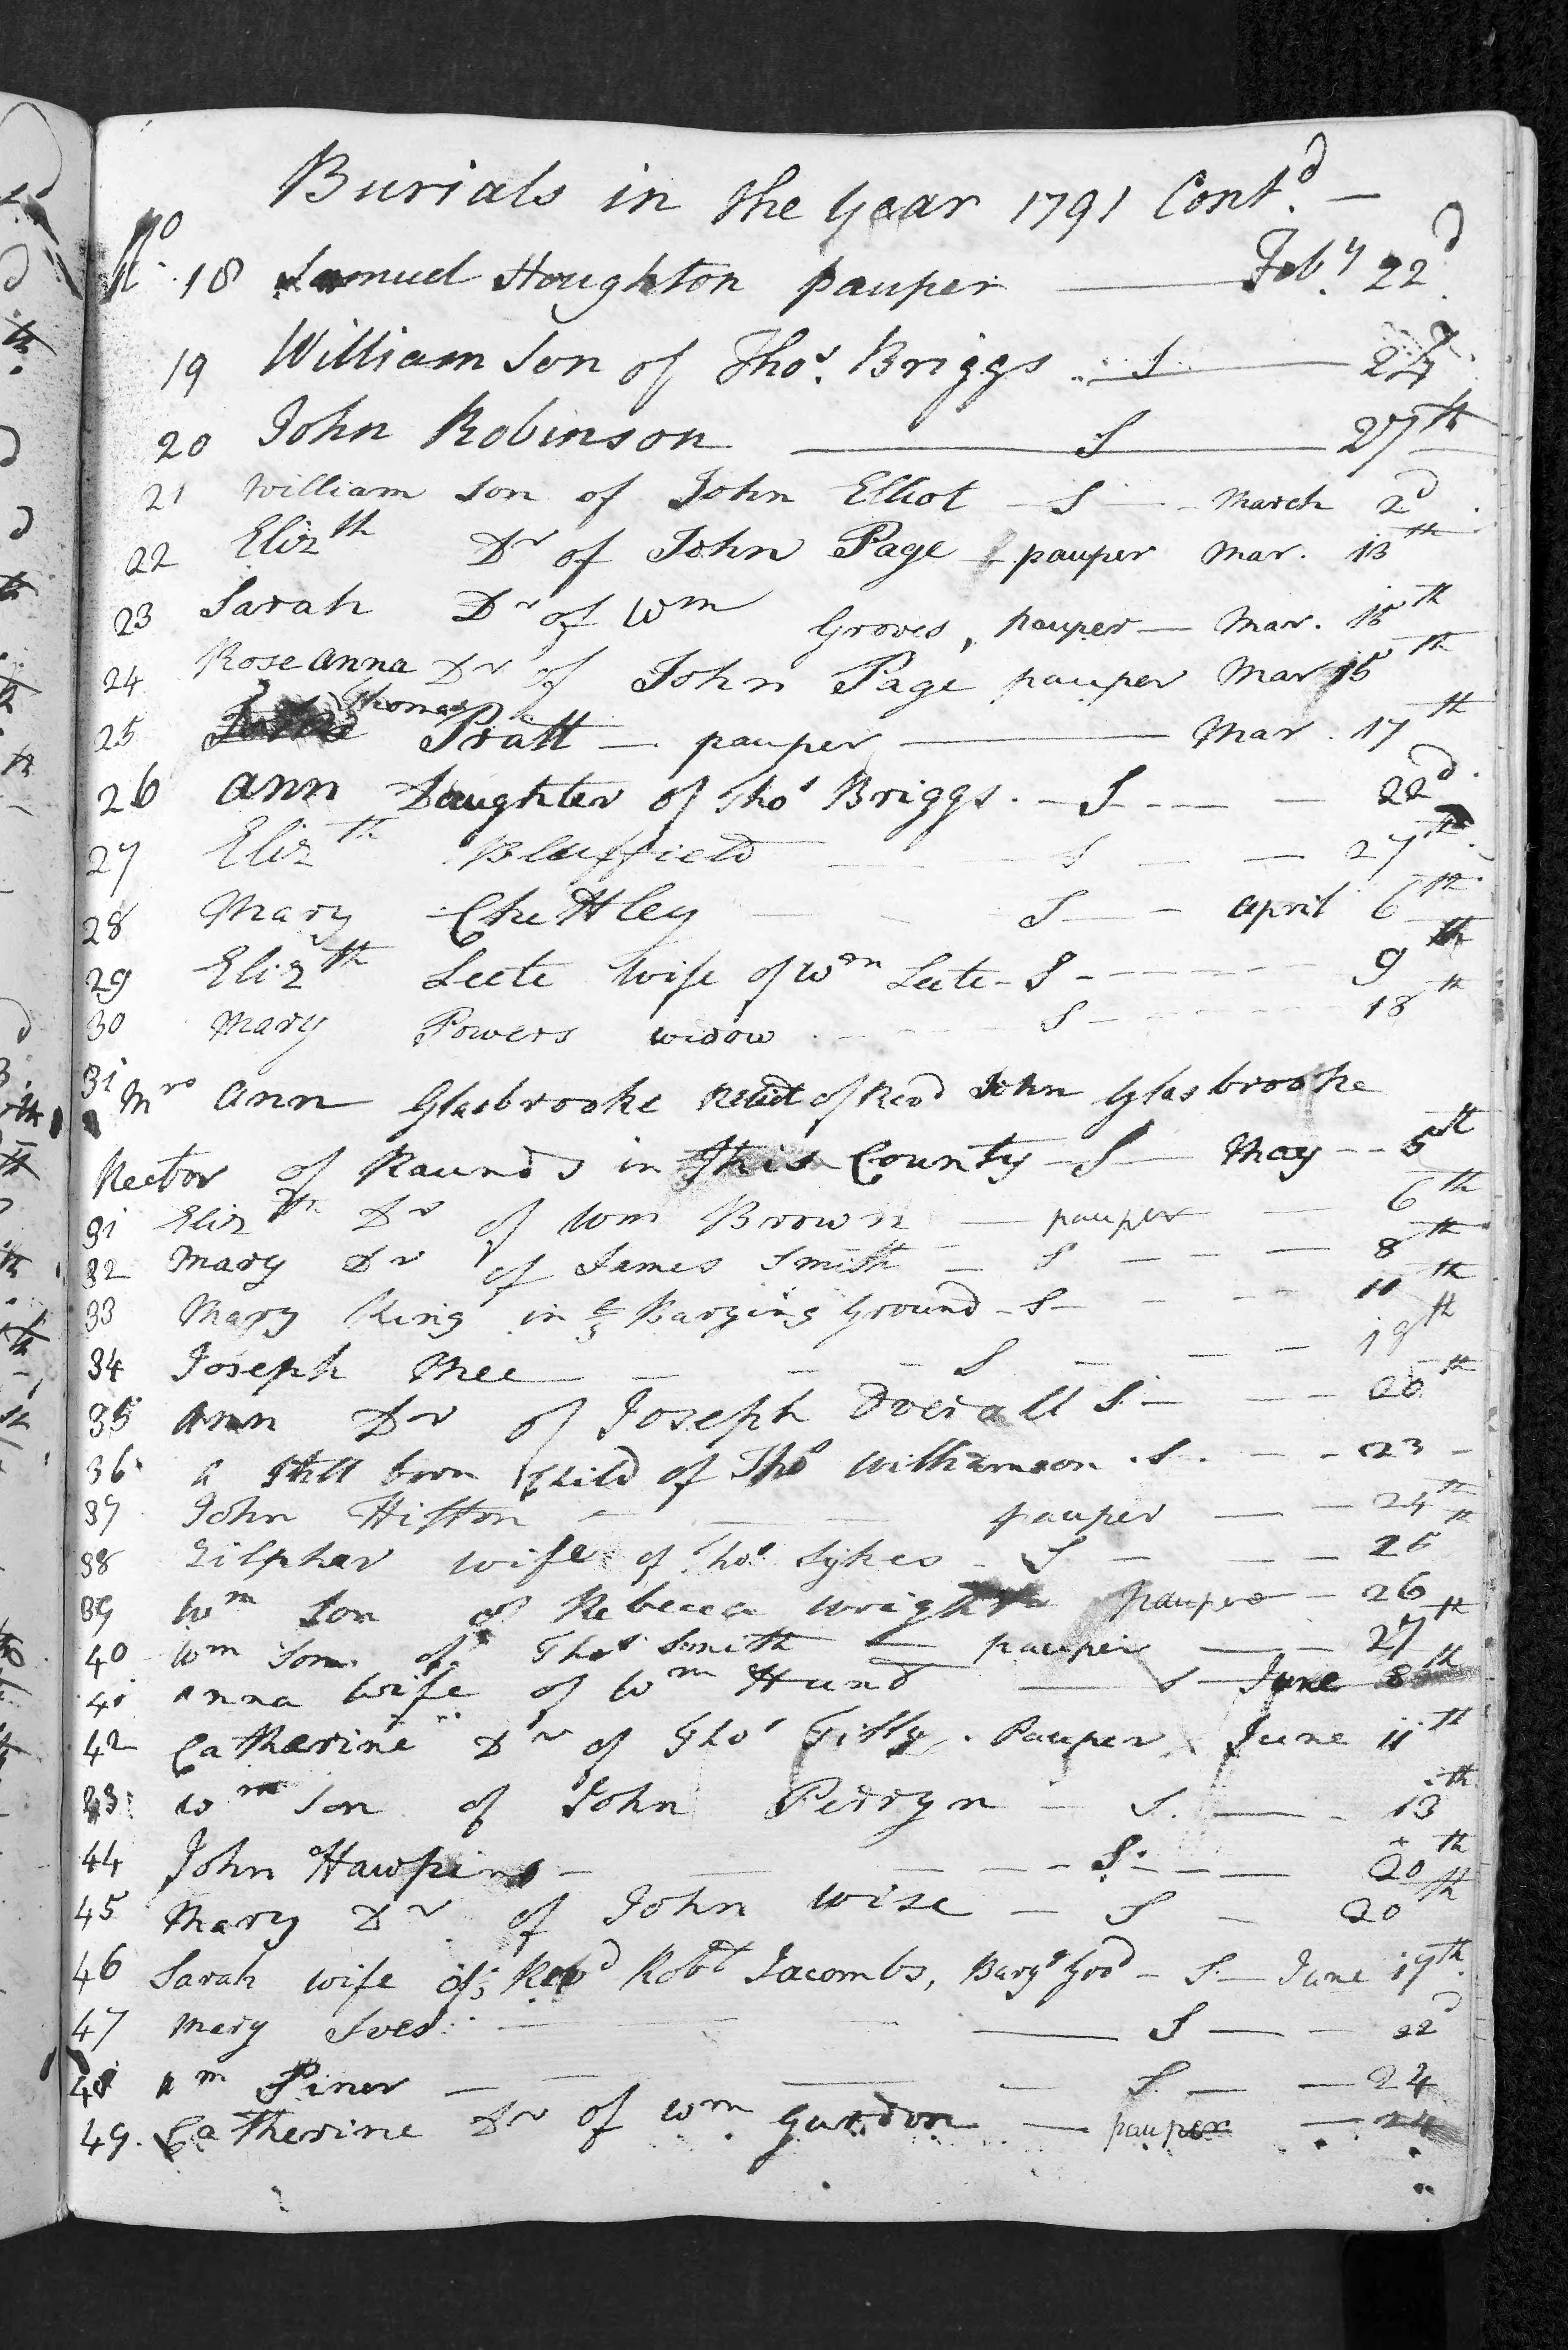 Burials in the Year 1791 Contd. —
No. 18 Samuel Houghton pauper — Feby. 22d
19 William Son of Thos. Briggs — S — 24
20 John Robinson — S — 27th
21 William Son of John Elliot - S — March 2d
22 Elizth Dr of John Page - pauper Mar. 13th
23 Sarah Dr of Wm Groves, pauper — Mar. 15th
24 Rose anna Dr of John Page pauper Mar 15th
25 Thomas Pratt — pauper — Mar. 17th
26 Ann Daughter of Thos Briggs. - S - — 22d
27 Elizth Bluffield — S — 27th
28 Mary Chettley — S — April 6th
29 Elizth Leete Wife of Wm Leete - S - 9th
30 Mary Powers widow - S - 18th
31 Mrs Ann Glasbrooke Relict of Revd John Glasbrooke
Rector of Raunds in This County - S — May -- 5th
31 Elizth Dr of Wm Brown — pauper — 6th
32 Mary Dr of James Smith — S — 8th
33 Mary King in Burying Ground - S - 11th
34 Joseph Mee — S — 19th
35 Ann Dr of Joseph Overall S. — 20th
36 A Still born Child of Thos Williamson . S. — 23 -
37 John Hifton — pauper — 24th
38 Zilphar wife of Thos Sykes - S — 25th
39 Wm Son of Rebecca Wright pauper - 26
40 Wm Son of Thos Smith — pauper — 27th
41 Anna Wife of Wm Hund — S — June 8th
42 Catherine Dr of Thos Tilly. Pauper June 11th
43 Wm Son of John Perryn — S. — 13th
44 John Hawpins — S. — 20th
45 Mary Dr of John Wise — S — 20th
46 Sarah wife of Revd Robt Jacombs, Buryg Grod - S — June 17th
47 Mary Ives — S — 22d
48 Wm Piner — S — 24
49. Catherine Dr of Wm Gurdon — pauper — 24